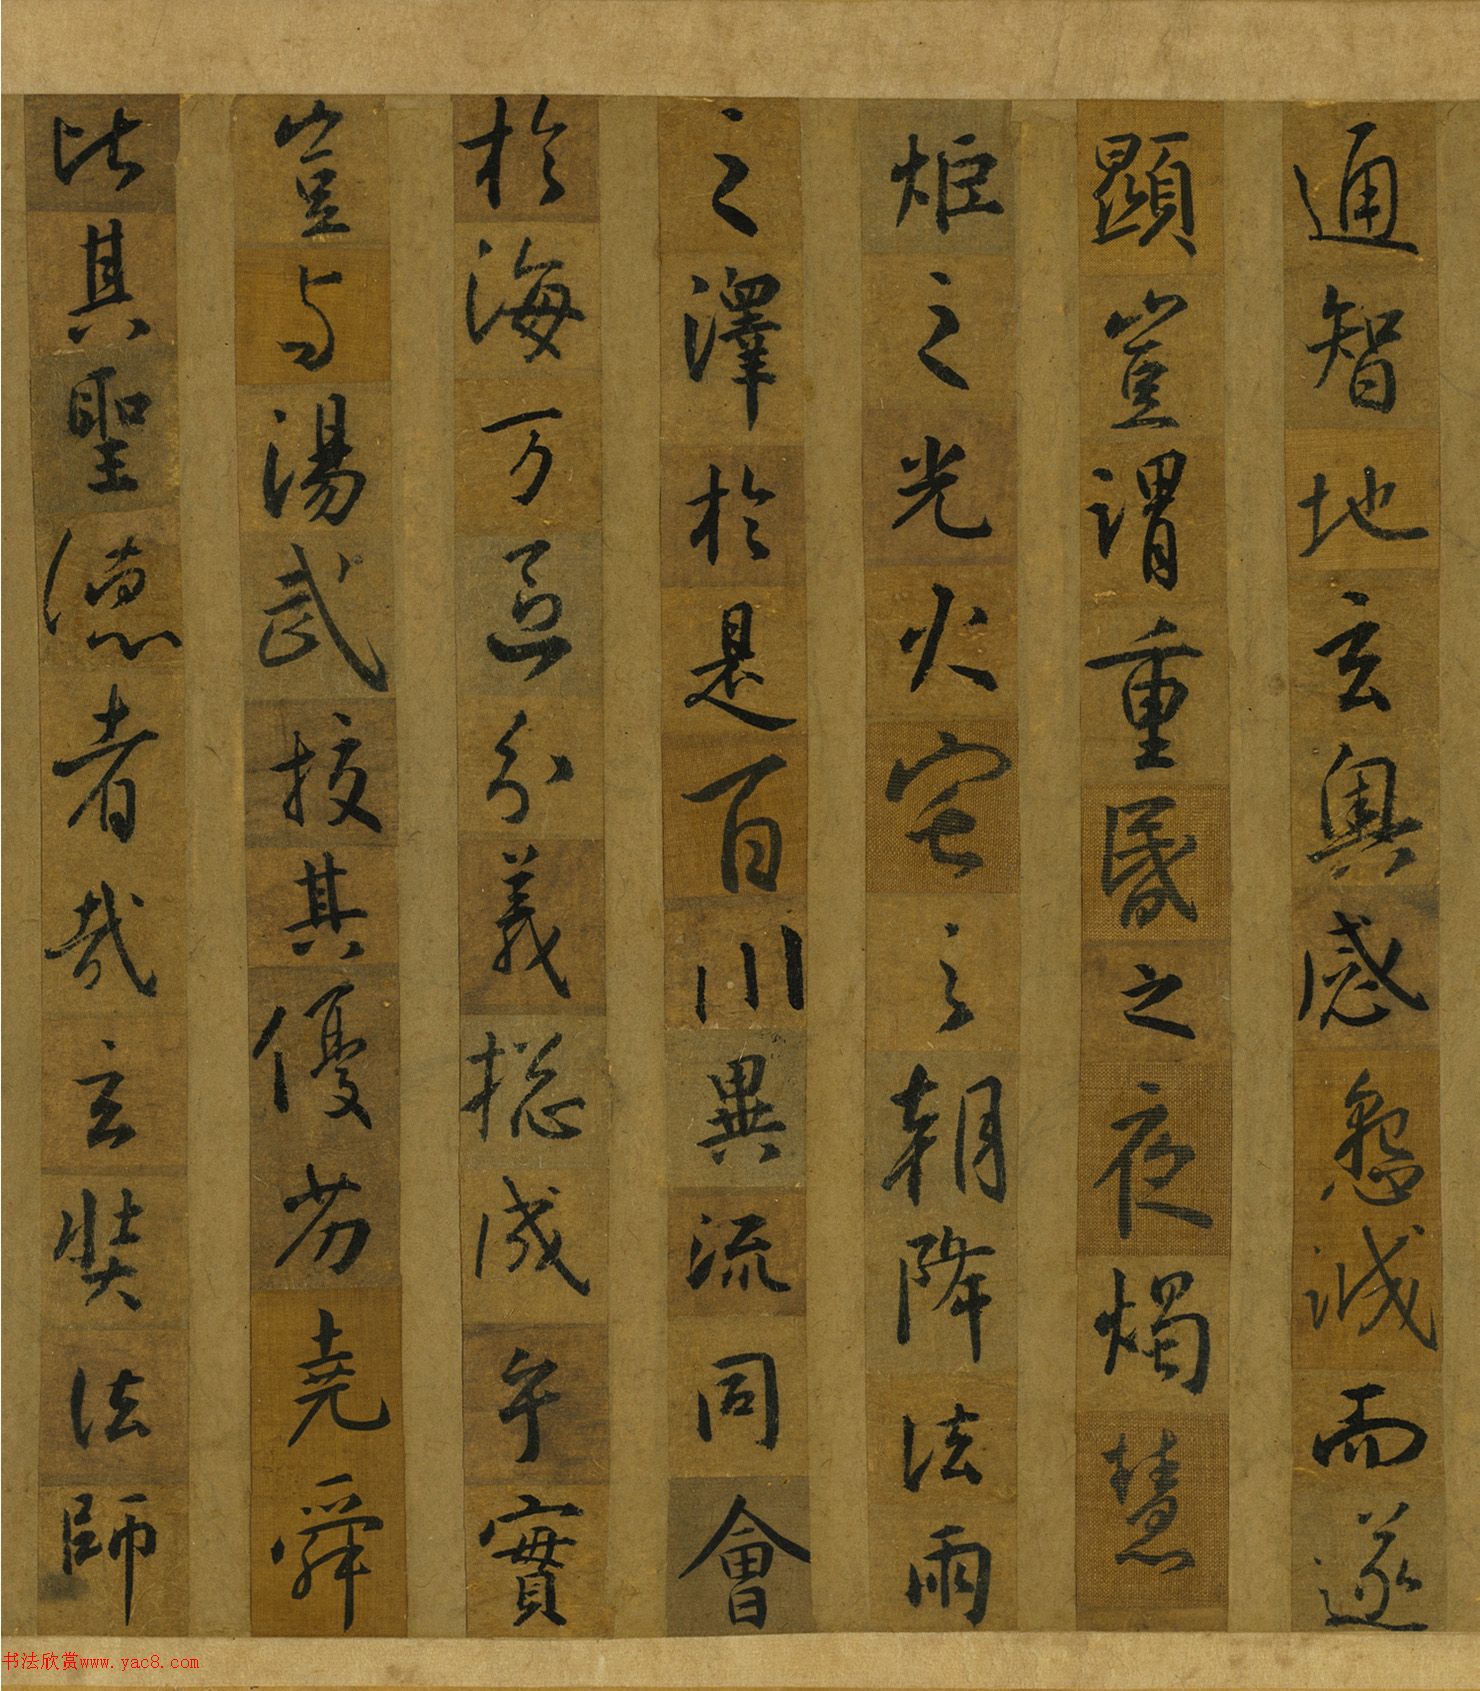 通智地玄奧感懇誠而遂
顯豈謂重昏之夜燭慧
炬之光火宅之朝降法雨
之澤於是百川異流同會
於海万區分義揔成乎實
豈与湯武挍其優劣堯舜
比其聖德者哉玄奘法師
书法欣赏www.yac8.com